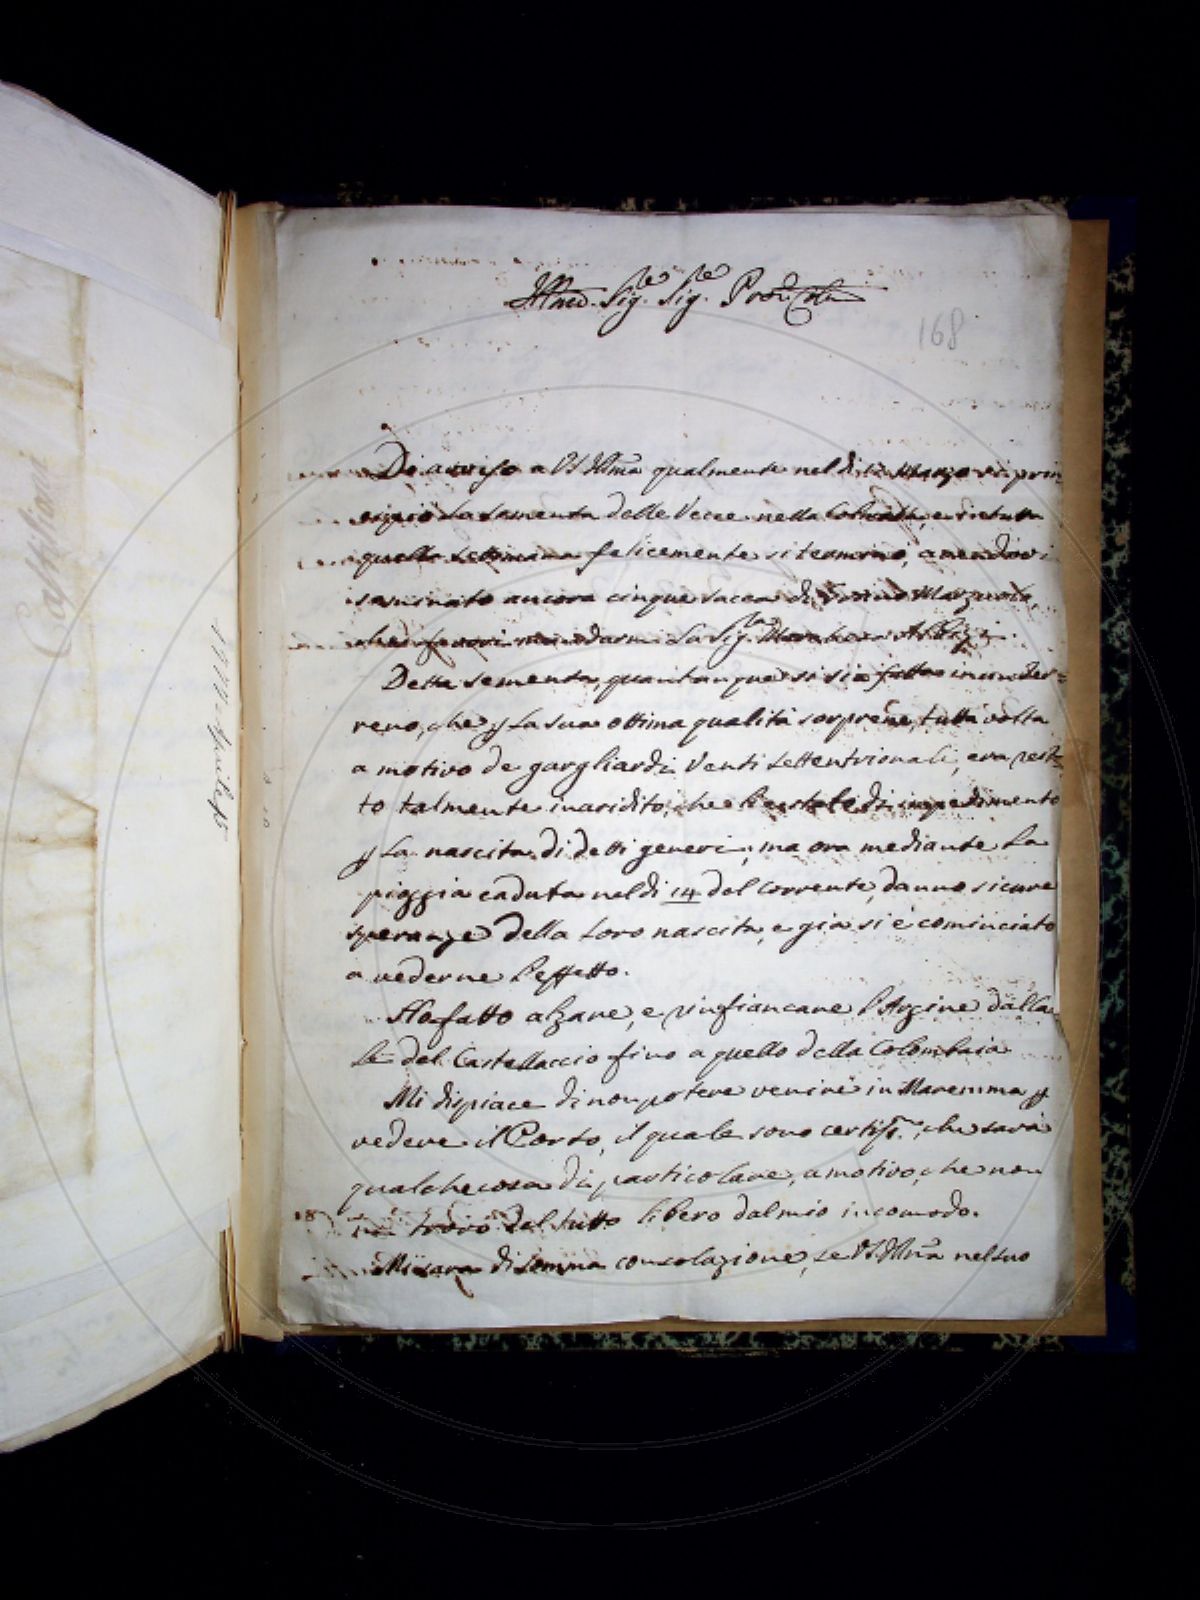 Illmo. Sig.re Sig.re Prone Colmo
168
Do avviso a VS Illma qualmente nel dì 12 Marzo si prin
cipiò La Sementa delle Vecce nella Colmata, e in tutta
quella settimana felicemente si terminò, avendovi
seminato ancora cinque sacca di Grano Marzuolo,
che favorì mandarmi La Sig.ra Marchesa Albizi.
Detta sementa, quantunque si sia fatta in un ter=
reno, che p La sua ottima qualità sorprende, tutta volta
a motivo de gargliardi Venti settentrionali, era resta
to talmente inaridito, che l'è stato di impedimento
p La nascita di detti generi, ma ora mediante La
pioggia caduta nel dì 14 del corrente, danno sicure
speranze della loro nascita, e già si è cominciato
a vederne l'effetto.
Ho fatto alzare, e rinfiancare l'Argine dalla Ca
la del Castellaccio fino a quello della Colombaia
Mi dispiace di non potere venire in Maremma p
vedere il Porto, il quale sono certiss.mo, che sarà
qualche cosa di particolare, a motivo, che non
mi trovo del tutto libero dal mio incomodo.
Mi sarà di somma consolazione, se VS Illma nel suo
Castiglioni
1777 Aprile